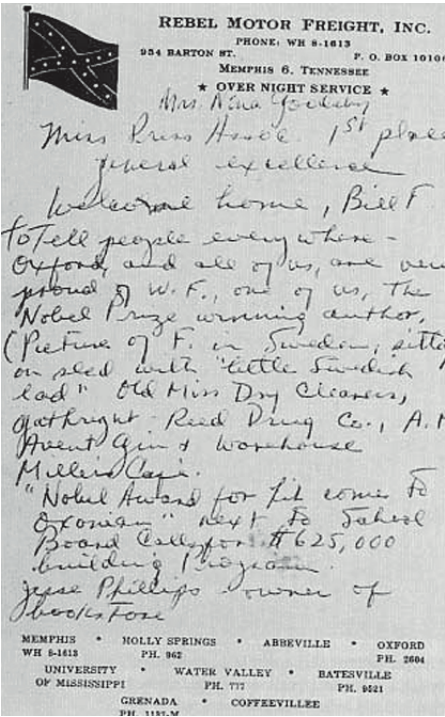 REBEL MOTOR FREIGHT, INC.
PHONE: WH 8-1613
954 BARTON ST. P. O. BOX 1010
MEMPHIS 6, TENNESSEE
★ OVER NIGHT SERVICE ★
Mrs. Nina Goolsby
Miss Press Assoc. 1st place
general excellence
Welcome home, Bill F
to Tell people everywhere -
Oxford, and all of us, are very
proud of W. F., one of us, The
Nobel Prize winning author,
(Picture of F. in Sweden, sitting
on sled with "little Swedish
lad" Old Miss Dry Cleaners,
Gathright - Reed Drug Co., A. H
Avent Gin & Warehouse
Miller's Cafe.
"Nobel Award for Lit comes To
Oxonian" next To School
Board Calls for $625,000
building Program.
Jesse Phillips - owner of
bookstore
MEMPHIS • HOLLY SPRINGS • ABBEVILLE • OXFORD
WH 8-1613 PH. 962 PH. 2604
UNIVERSITY • WATER VALLEY • BATESVILLE
OF MISSISSIPPI PH. 777 PH. 9521
GRENADA • COFFEEVILLEE
PH. 1157-M